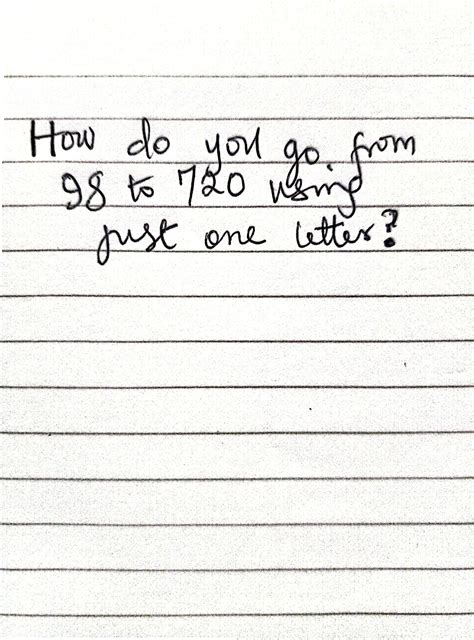 How do you go from
98 to 720 using
just one letter?